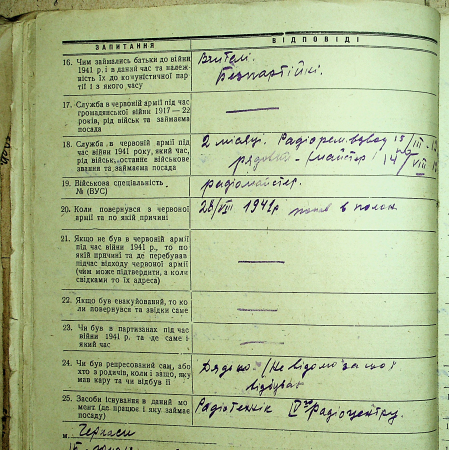 ЗАПИТАННЯ
ВІДПОВІДІ
16. Чим займались батьки до війни
1941 р. і в даний час та належ-
ність їх до комуністичної пар-
тії і з якого часу
Вчителі.
Безпартійні.
17. Служба в червоній армії під час
громадянської війни 1917—22
років, рід військ та займаєма
посада
18. Служба в червоній армії під
час війни 1941 року, який час,
рід військ, останнє військове
звання та займаєма посада
2 місяці. Радіорем. взвод
рядовий - майстер
19. Військова спеціальність
№ (ВУС)
радіомайстер.
20. Коли повернувся з червоної
армії та по якій причині
28/VIII 1941р попав в полон
21. Якщо не був в червоній армії
під час війни 1941 р., то по
якій причині та де перебував
підчас відходу червоної армії
(чим може підтвердити, а коли
свідками то їх адреса)
22. Якщо був евакуйований, то ко-
ли повернувся та звідки саме
23. Чи був в партизанах під час
війни 1941 р. та де саме і
який час
24. Чи був репресований сам, або
хто з родичів, коли і защо, яку
мав кару та чи відбув її
Дядько. /Не відомо за що і
25. Засоби існування в даний мо-
мент (де працює і яку займає
посаду)
Радіотехнік радіоцентру.
м. Черкаси